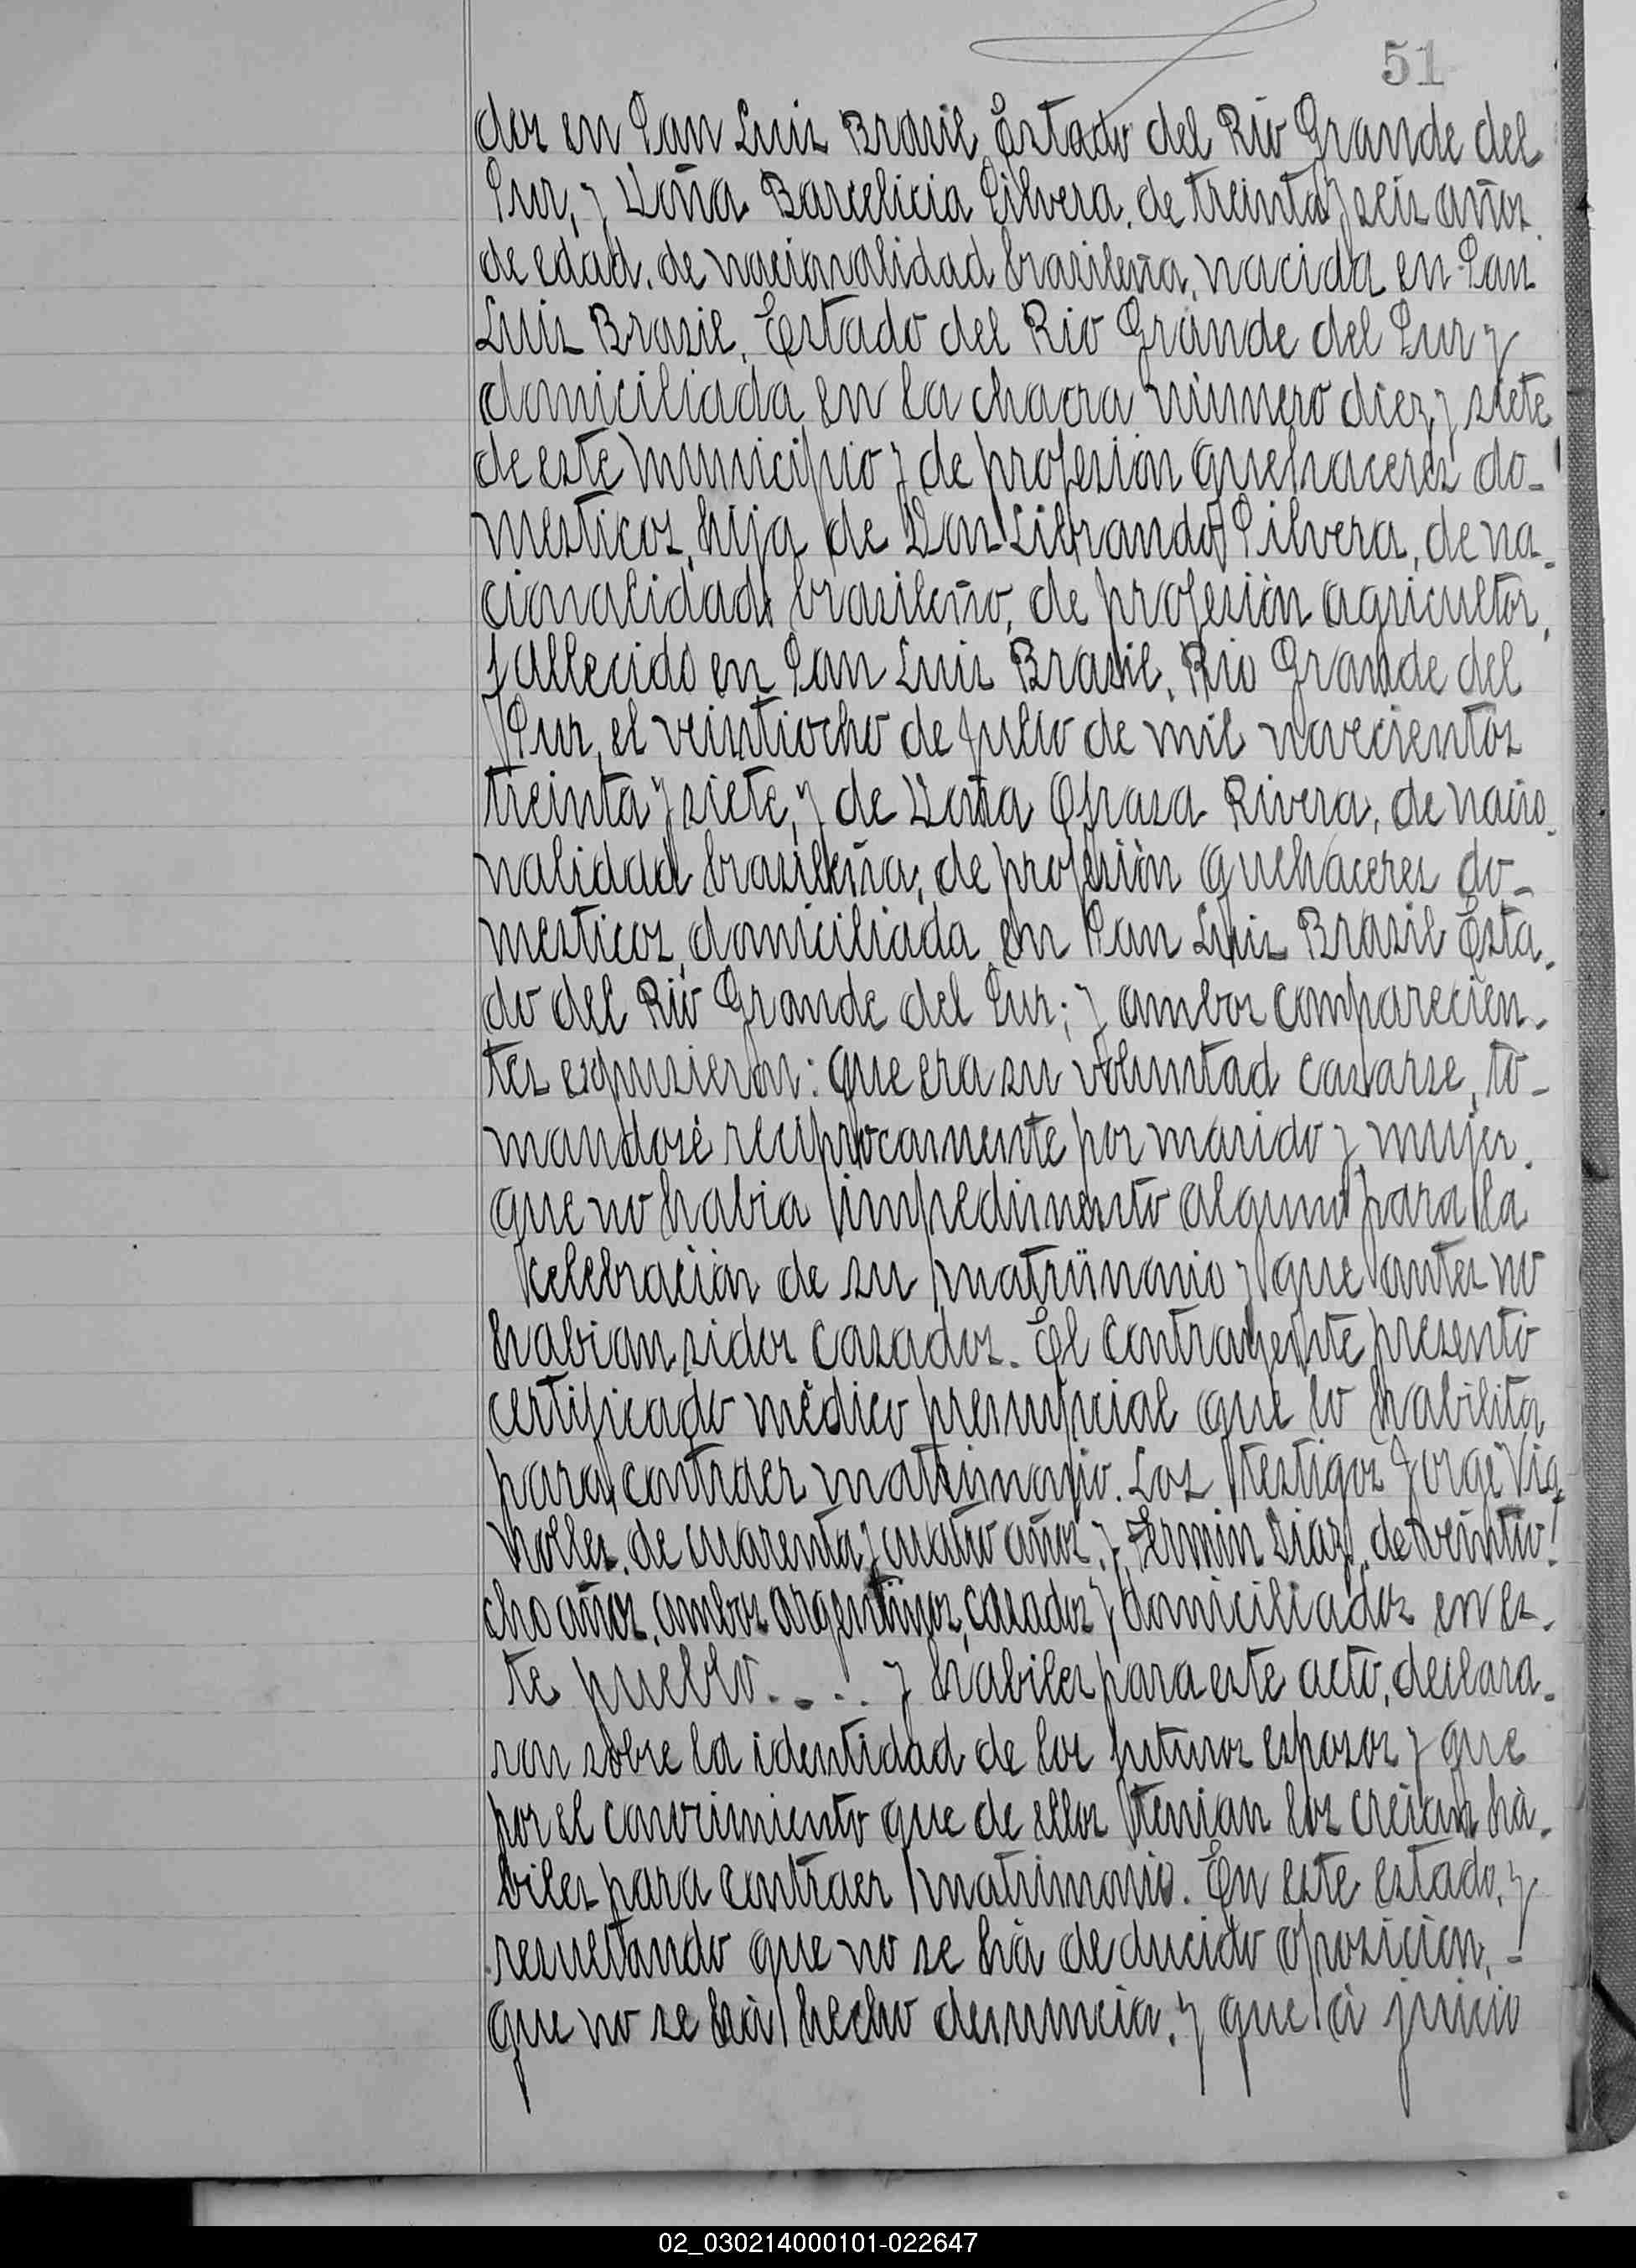 51
dos en San Luis Brasil Estado del Rio Grande del
Sur, y Doña Barcelicia Silvera, de treinta y seis años
de edad, de nacionalidad brasileña, nacida en San
Luis Brasil, Estado del Rio Grande del Sur y
domiciliada en la chacra número diez y siete
de este municipio y de profesión quehaceres do-
mesticos, hija de Don Librando Silvera, de na-
cionalidad brasileño, de profesión agricultor,
fallecido en San Luis Brasil, Rio Grande del
Sur, el veintiocho de julio de mil novecientos
treinta y siete, y de Doña Ofrasa Rivera, de nacio-
nalidad brasileña, de profesión quehaceres do-
mesticos, domiciliada en San Luis Brasil Esta-
do del Rio Grande del Sur; y ambos comparecien-
tes expusieron: que era su voluntad casarse, to-
mandose reciprocamente por marido y mujer,
que no habia impedimento alguno para la
celebración de su matrimonio y que antes no
habian sidos casados. El contrayente presentó
certificado médico prenupcial que lo habilita
para contraer matrimonio. Los testigos Jorge Vig
nolles, de cuarenta y cuatro años, y Fermin Diaz, de veintio-
cho años, ambos argentinos, casados y domiciliados en es-
te pueblo.... y habiles para este acto, declara-
ron sobre la identidad de los futuros esposos y que
por el conocimiento que de ellos tenian los creian há-
biles para contraer matrimonio. En este estado, y
resultando que no se há deducido oposición, -
que no se há hecho denuncia, y que á juicio
02_030214000101-022647